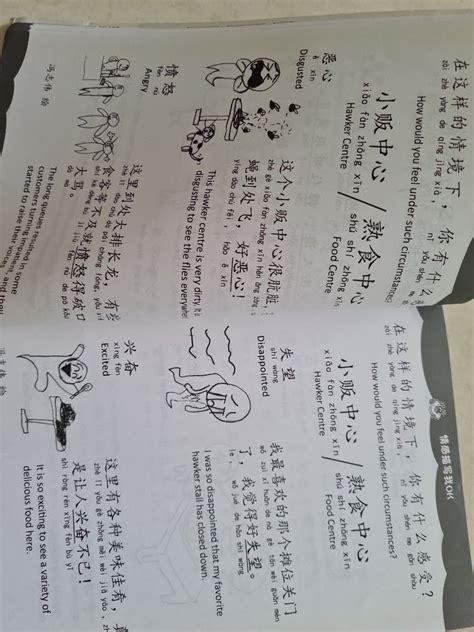 在这样的情境下，你有什么
zài zhè yàng de qíng jìng xià, nǐ yǒu shén
How would you feel under such circumstances
小贩中心/熟食中心
xiǎo fàn zhōng xīn shú shí zhōng xīn
Hawker Centre Food Centre
恶心
ě xīn
Disgusted
这个小贩中心很肮脏
zhè gè xiǎo fàn zhōng xīn hěn āng zāng
蝇到处飞，好恶心！
yíng dào chù fēi, hǎo ě xīn
This hawker centre is very dirty, it
disgusting to see the flies everywhe
愤怒
fèn nù
Angry
这里到处大排长龙，有些
食客等不及就愤怒得破口
大骂。
dà mà
The long queues resu
customers turning
started to raise their
冯志伟 绘
情感描写我OK
在这样的情境下，你有什么感受？
zài zhè yàng de qíng jìng xià, nǐ yǒu shén me gǎn shòu
How would you feel under such circumstances?
小贩中心/熟食中心
xiǎo fàn zhōng xīn shú shí zhōng xīn
Hawker Centre Food Centre
失望
shī wàng
Disappointed
我最喜欢的那个摊位关门
wǒ zuì xǐ huān de nà gè tān wèi guān mén
了，我觉得好失望。
le, wǒ jué de hǎo shī wàng
I was so disappointed that my favorite
hawker stall has closed down.
兴奋
xīng fèn
Excited
这里有各种美味佳肴，真
zhè lǐ yǒu gè zhǒng měi wèi jiā yáo, zh
是让人兴奋不已！
shì ràng rén xīng fèn bù yǐ
It is so exciting to see a variety of
delicious food here.